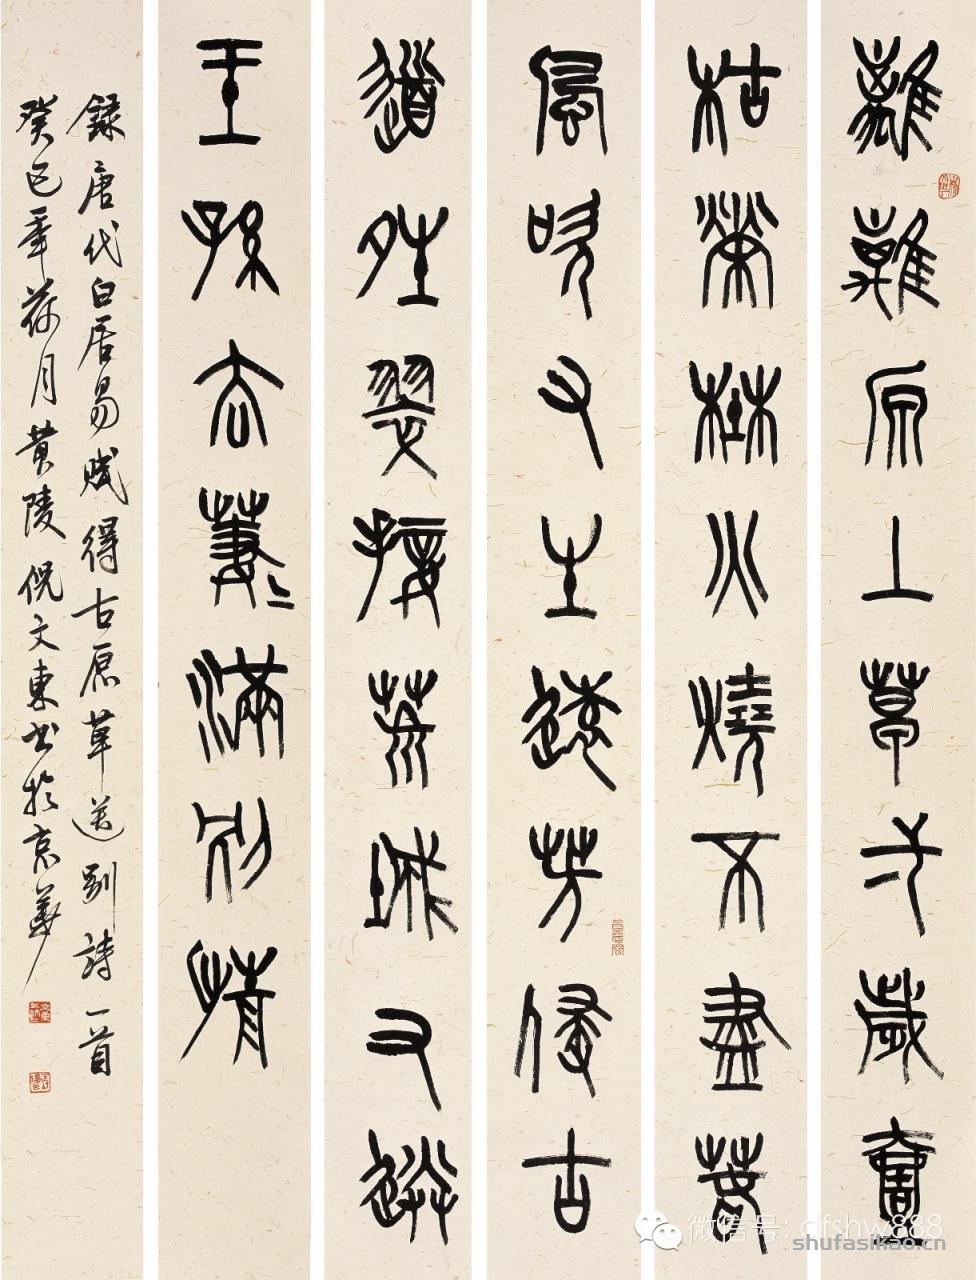 離離原上草弌歲壹
枯榮埜火燒不盡春
風吹又生遠芳侵古
道晴翠接荒城又送
王孫去萋〻滿別情
錄唐代白居易賦得古原草送別詩一首
癸巳年荷月黃陵倪文東書於京華
微信号: dfshw888